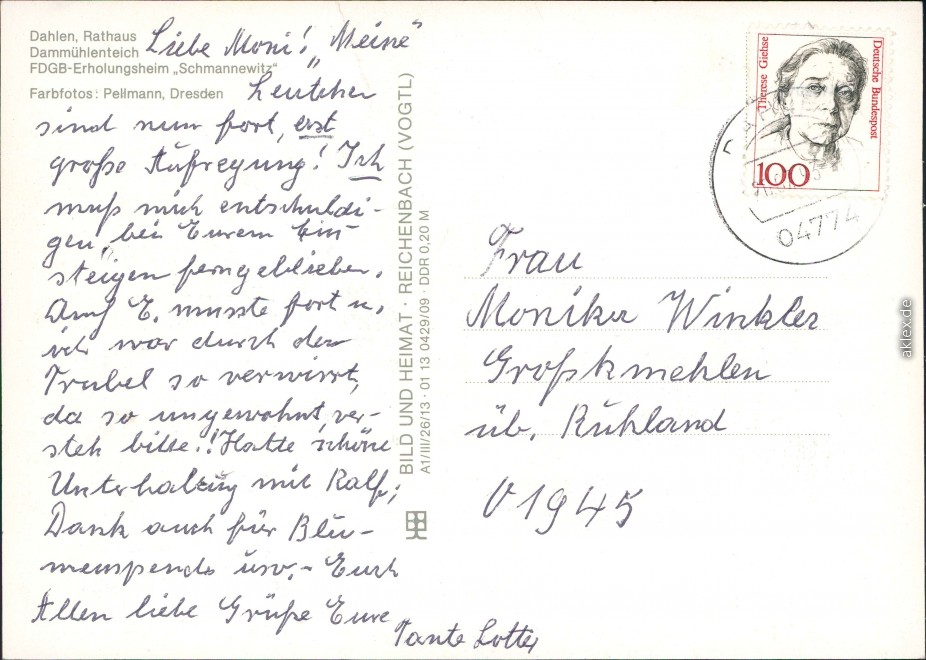 Dahlen, Rathaus
Dammühlenteich
FDGB-Erholungsheim „Schmannewitz"
Farbfotos: Pellmann, Dresden
Liebe Moni! „Meine"
Leutchen
sind nun fort, erst
große Aufregung! Ich
muß mich entschuldi-
gen, bei Eurem Ein-
steigen ferngeblieben.
Auch E. musste fort u.
ich war durch den
Trubel so verwirrt,
da so ungewohnt, ver-
steh bitte! Hatte schöne
Unterhaltung mit Ralf;
Dank auch für Blu-
menspende usw. - Euch
Allen liebe Grüße Eure
Tante Lotte
BILD UND HEIMAT · REICHENBACH (VOGTL)
A1/III/26/13 · 01 13 0429/09 · DDR 0,20 M
Therese Giehse
Deutsche Bundespost
100
04774
Frau
Monika Winkler
Großkmehlen
üb. Ruhland
O 1945
aklex.de